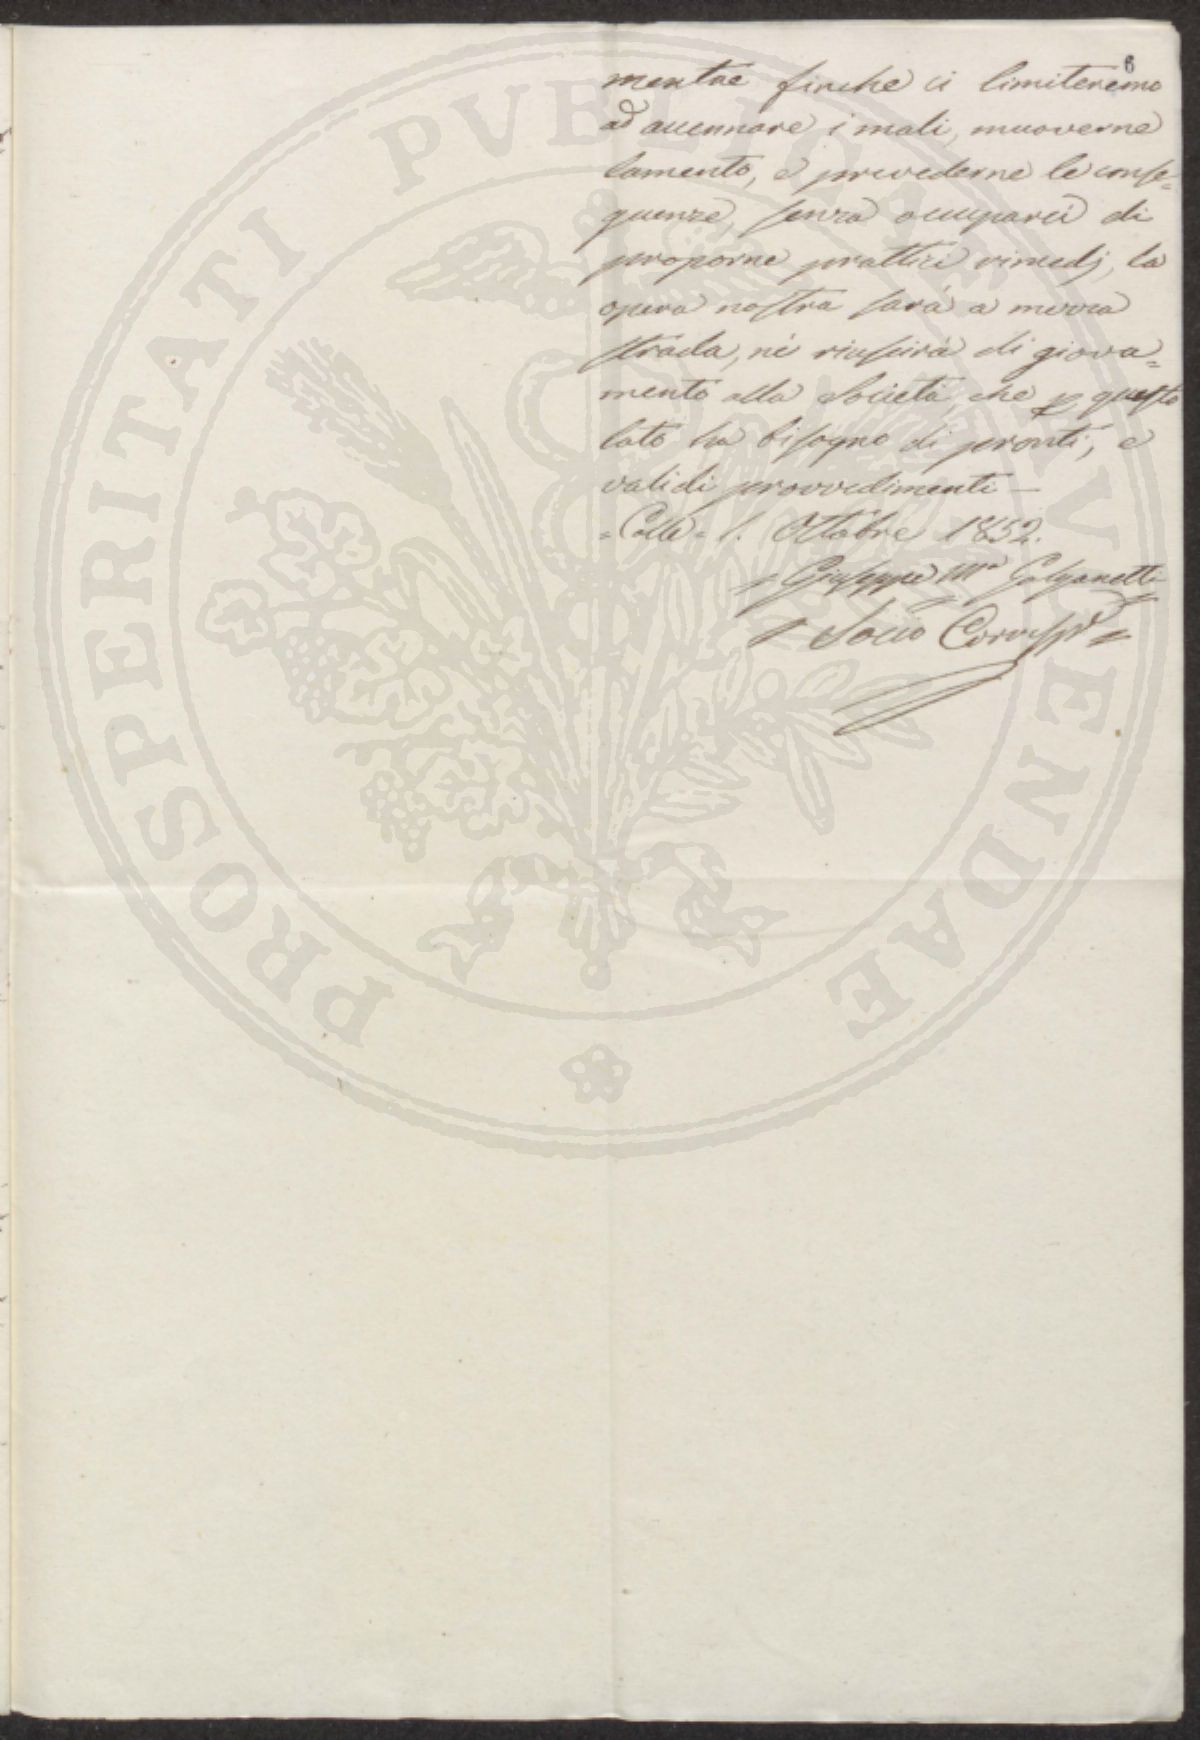 8
mentre finche ci limiteremo
ad accennare i mali, muoverne
lamento, e prevederne le conse=
guenze, senza occuparci di
proporne prattici rimedj, la
opera nostra sarà a mezza
strada, nè riuscirà di giova=
mento alla Società, che p questo
lato ha bisogno di pronti, e
validi provvedimenti —
=Colle= 1. Ottobre 1852.
= Giuseppe Mª Galganetti =
= Socio Corrispe =
PROSPERITATI PVBLICAE AVGENDAE